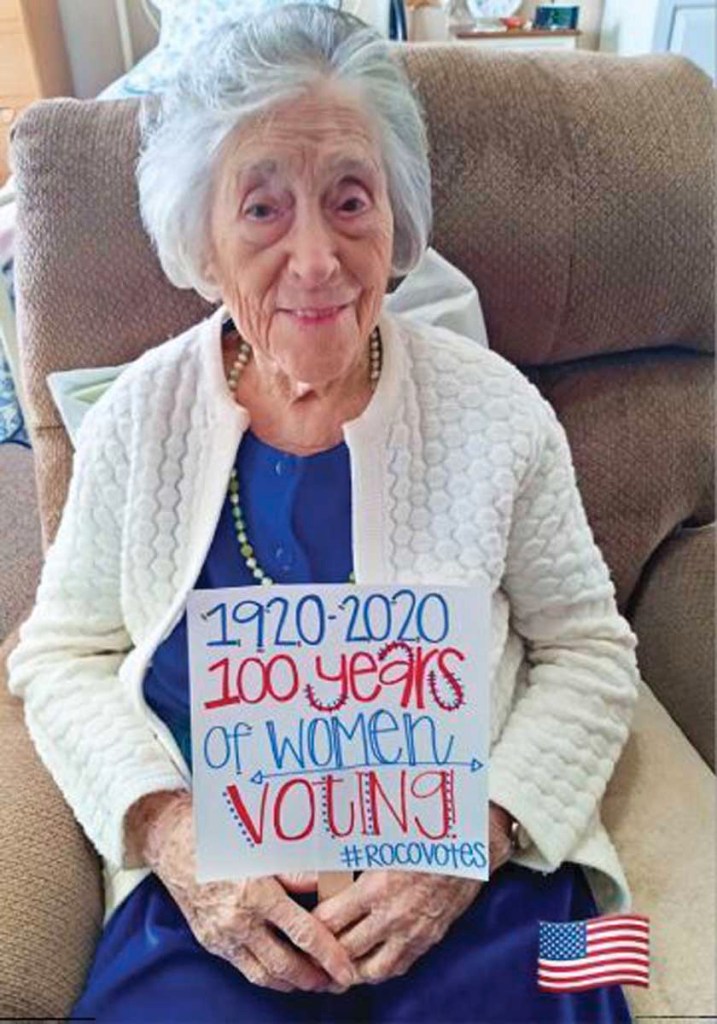 1920-2020
100 years
of women
VOTING
#ROCOVOTES